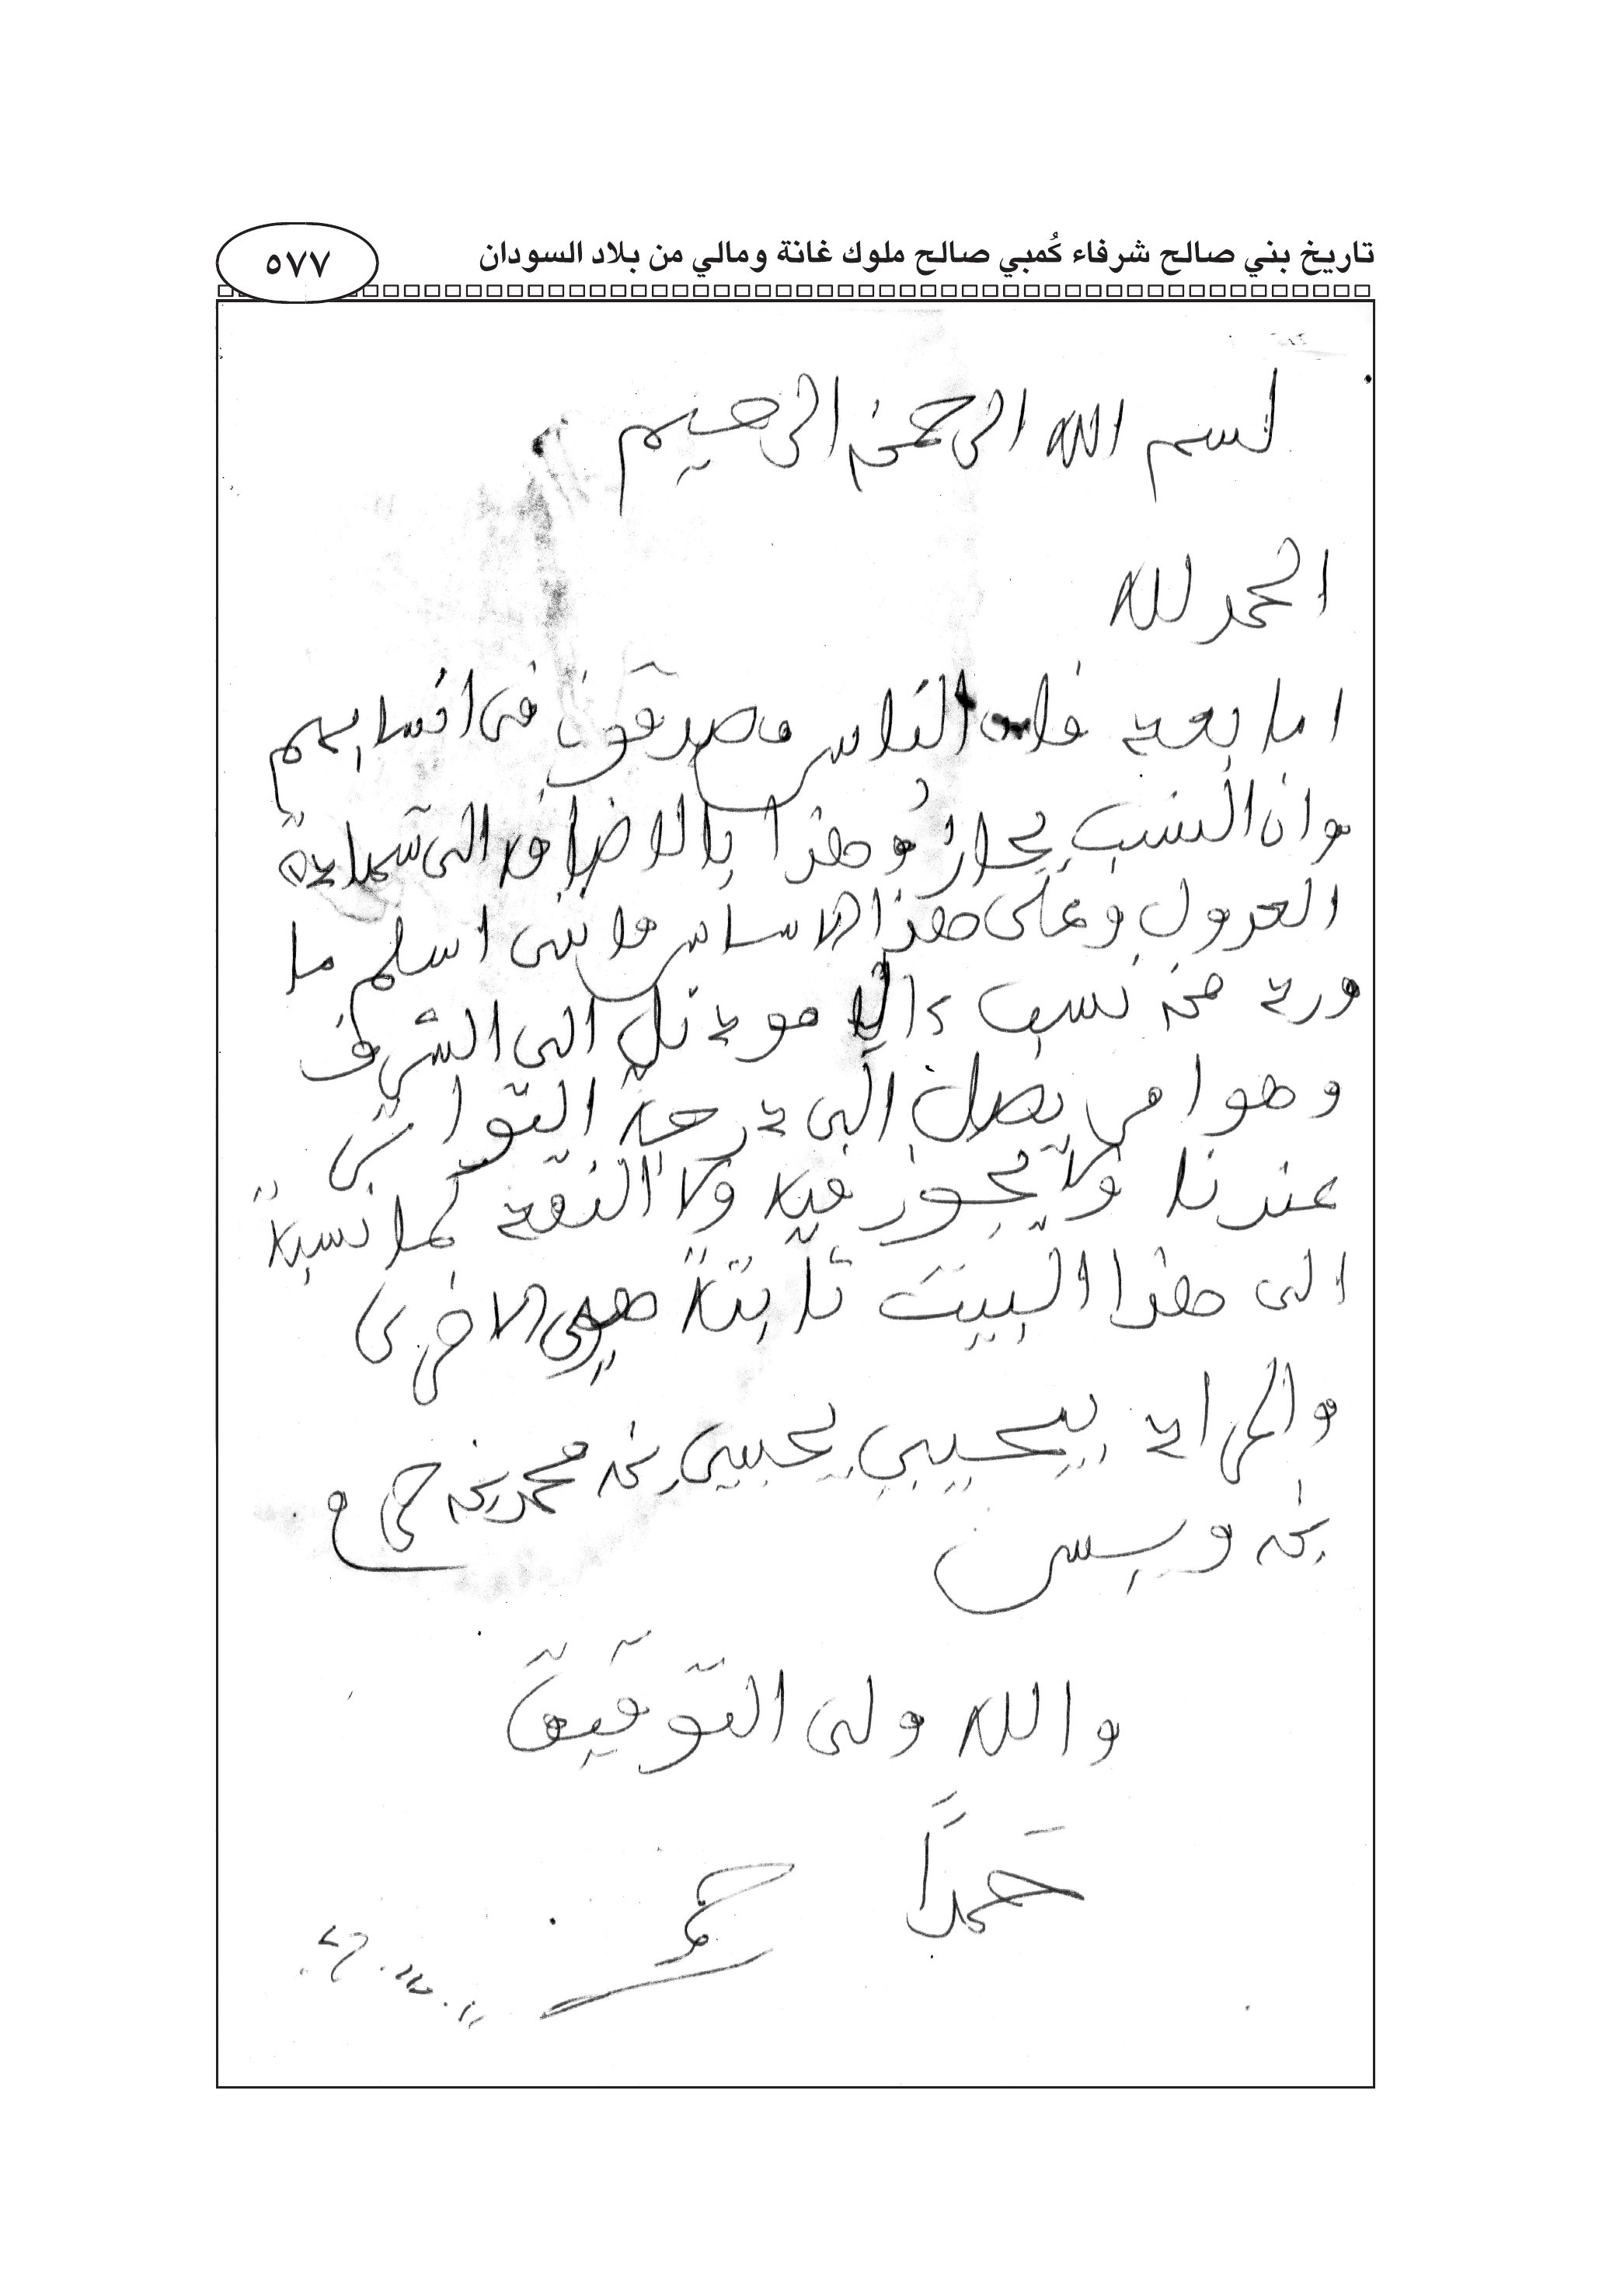 تاريخ بني صالح شرفاء كُمبي صالح ملوك غانة ومالي من بلاد السودان
٥٧٧
بسم الله الرحمن الرحيم
الحمد لله
اما بعد فان الناس مصدقون في انسابهم
وان النسب يحاز وهذا بالاضافة الى شهادة
العدول وعلى هذا الاساس فانني اسلم ما
ورد من نسب الى الشرف
وهو امر يصل الى درجة التواتر
عندنا ولا يجوز فيه ولا النقد كما نسبة
الى هذا البيت ثابتة هي الاخرى
والمراد يحيى بن محمد بن
بن ويس
والله ولي التوفيق
حَمدًا